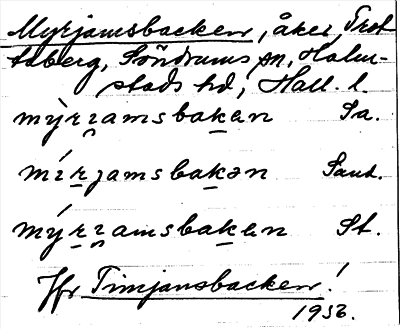 Myrjamsbacken, åker, Trot-
taberg, Söndrums sn, Halm-
stads hd, Hall. l.
mỳrɪamsbakan Sa.
mírjamsbakən Sand.
mýrɪamsbakan St.
Jfr Timjansbacken!
1936.